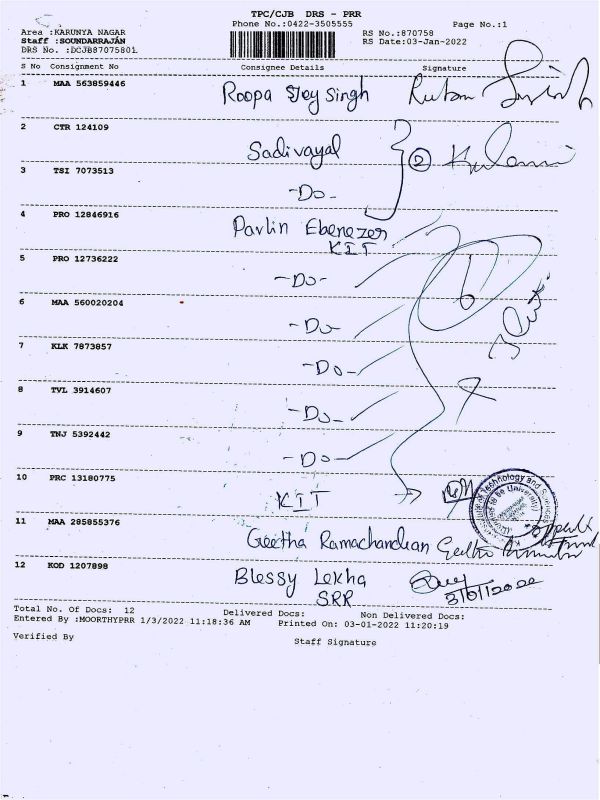 TPC/CJB DRS - PRR
Phone No.:0422-3505555 Page No.:1
Area :KARUNYA NAGAR RS No.:870758
Staff :SOUNDARRAJAN RS Date:03-Jan-2022
DRS No. :DCJB87075801
S No Consignment No Consignee Details Signature
1 MAA 563859446 Roopa Joy Singh
2 CTR 124109 Sadivayal 2
3 TSI 7073513 -Do-
4 PRO 12846916 Pavlin Ebenezer
KIT
5 PRO 12736222 -Do- 6
6 MAA 560020204 -Do-
7 KLK 7873857 -Do-
8 TVL 3914607 -Do-
9 TNJ 5392442 -Do-
10 PRC 13180775 KIT
11 MAA 285855376 Geetha Ramachandran
12 KOD 1207898 Blessy Lekha
SRR
Total No. Of Docs: 12 Delivered Docs: Non Delivered Docs:
Entered By :MOORTHYPRR 1/3/2022 11:18:36 AM Printed On: 03-01-2022 11:20:19
Verified By Staff Signature